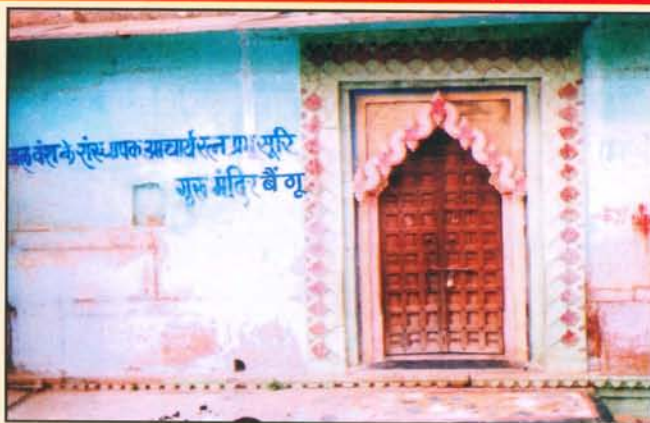 वंश के संस्थापक आचार्य रत्न प्रभ सूरि
गुरु मंदिर बैंगू